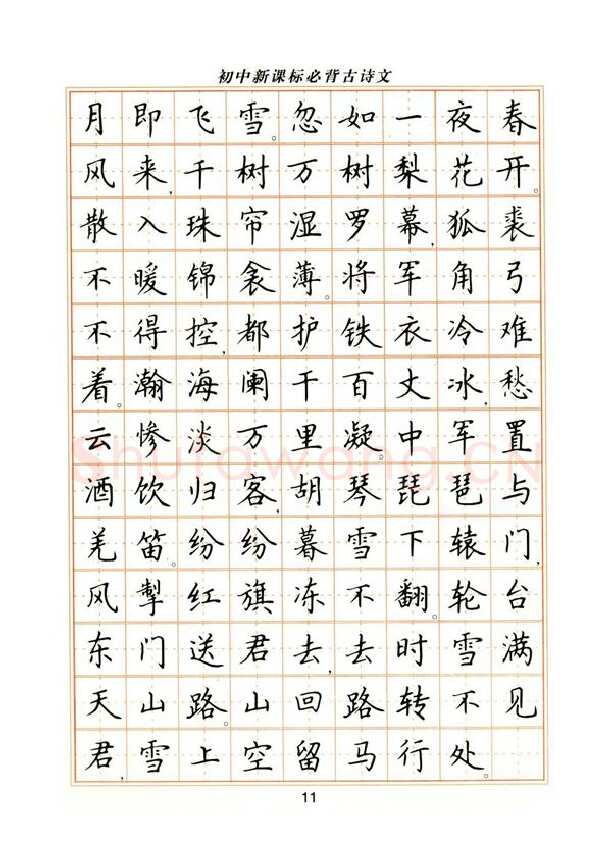 初中新课标必背古诗文
月即飞雪。忽如一夜春
风来,千树万树梨花开。
散入珠帘湿罗幕,狐裘
不暖锦衾薄。将军角弓
不得控,都护铁衣冷难
着。瀚海阑干百丈冰,愁
云惨淡万里凝。中军置
酒饮归客,胡琴琵琶与
羌笛。纷纷暮雪下辕门,
风掣红旗冻不翻。轮台
东门送君去,去时雪满
天山路。山回路转不见
君,雪上空留马行处。
11
Shufawang.CN